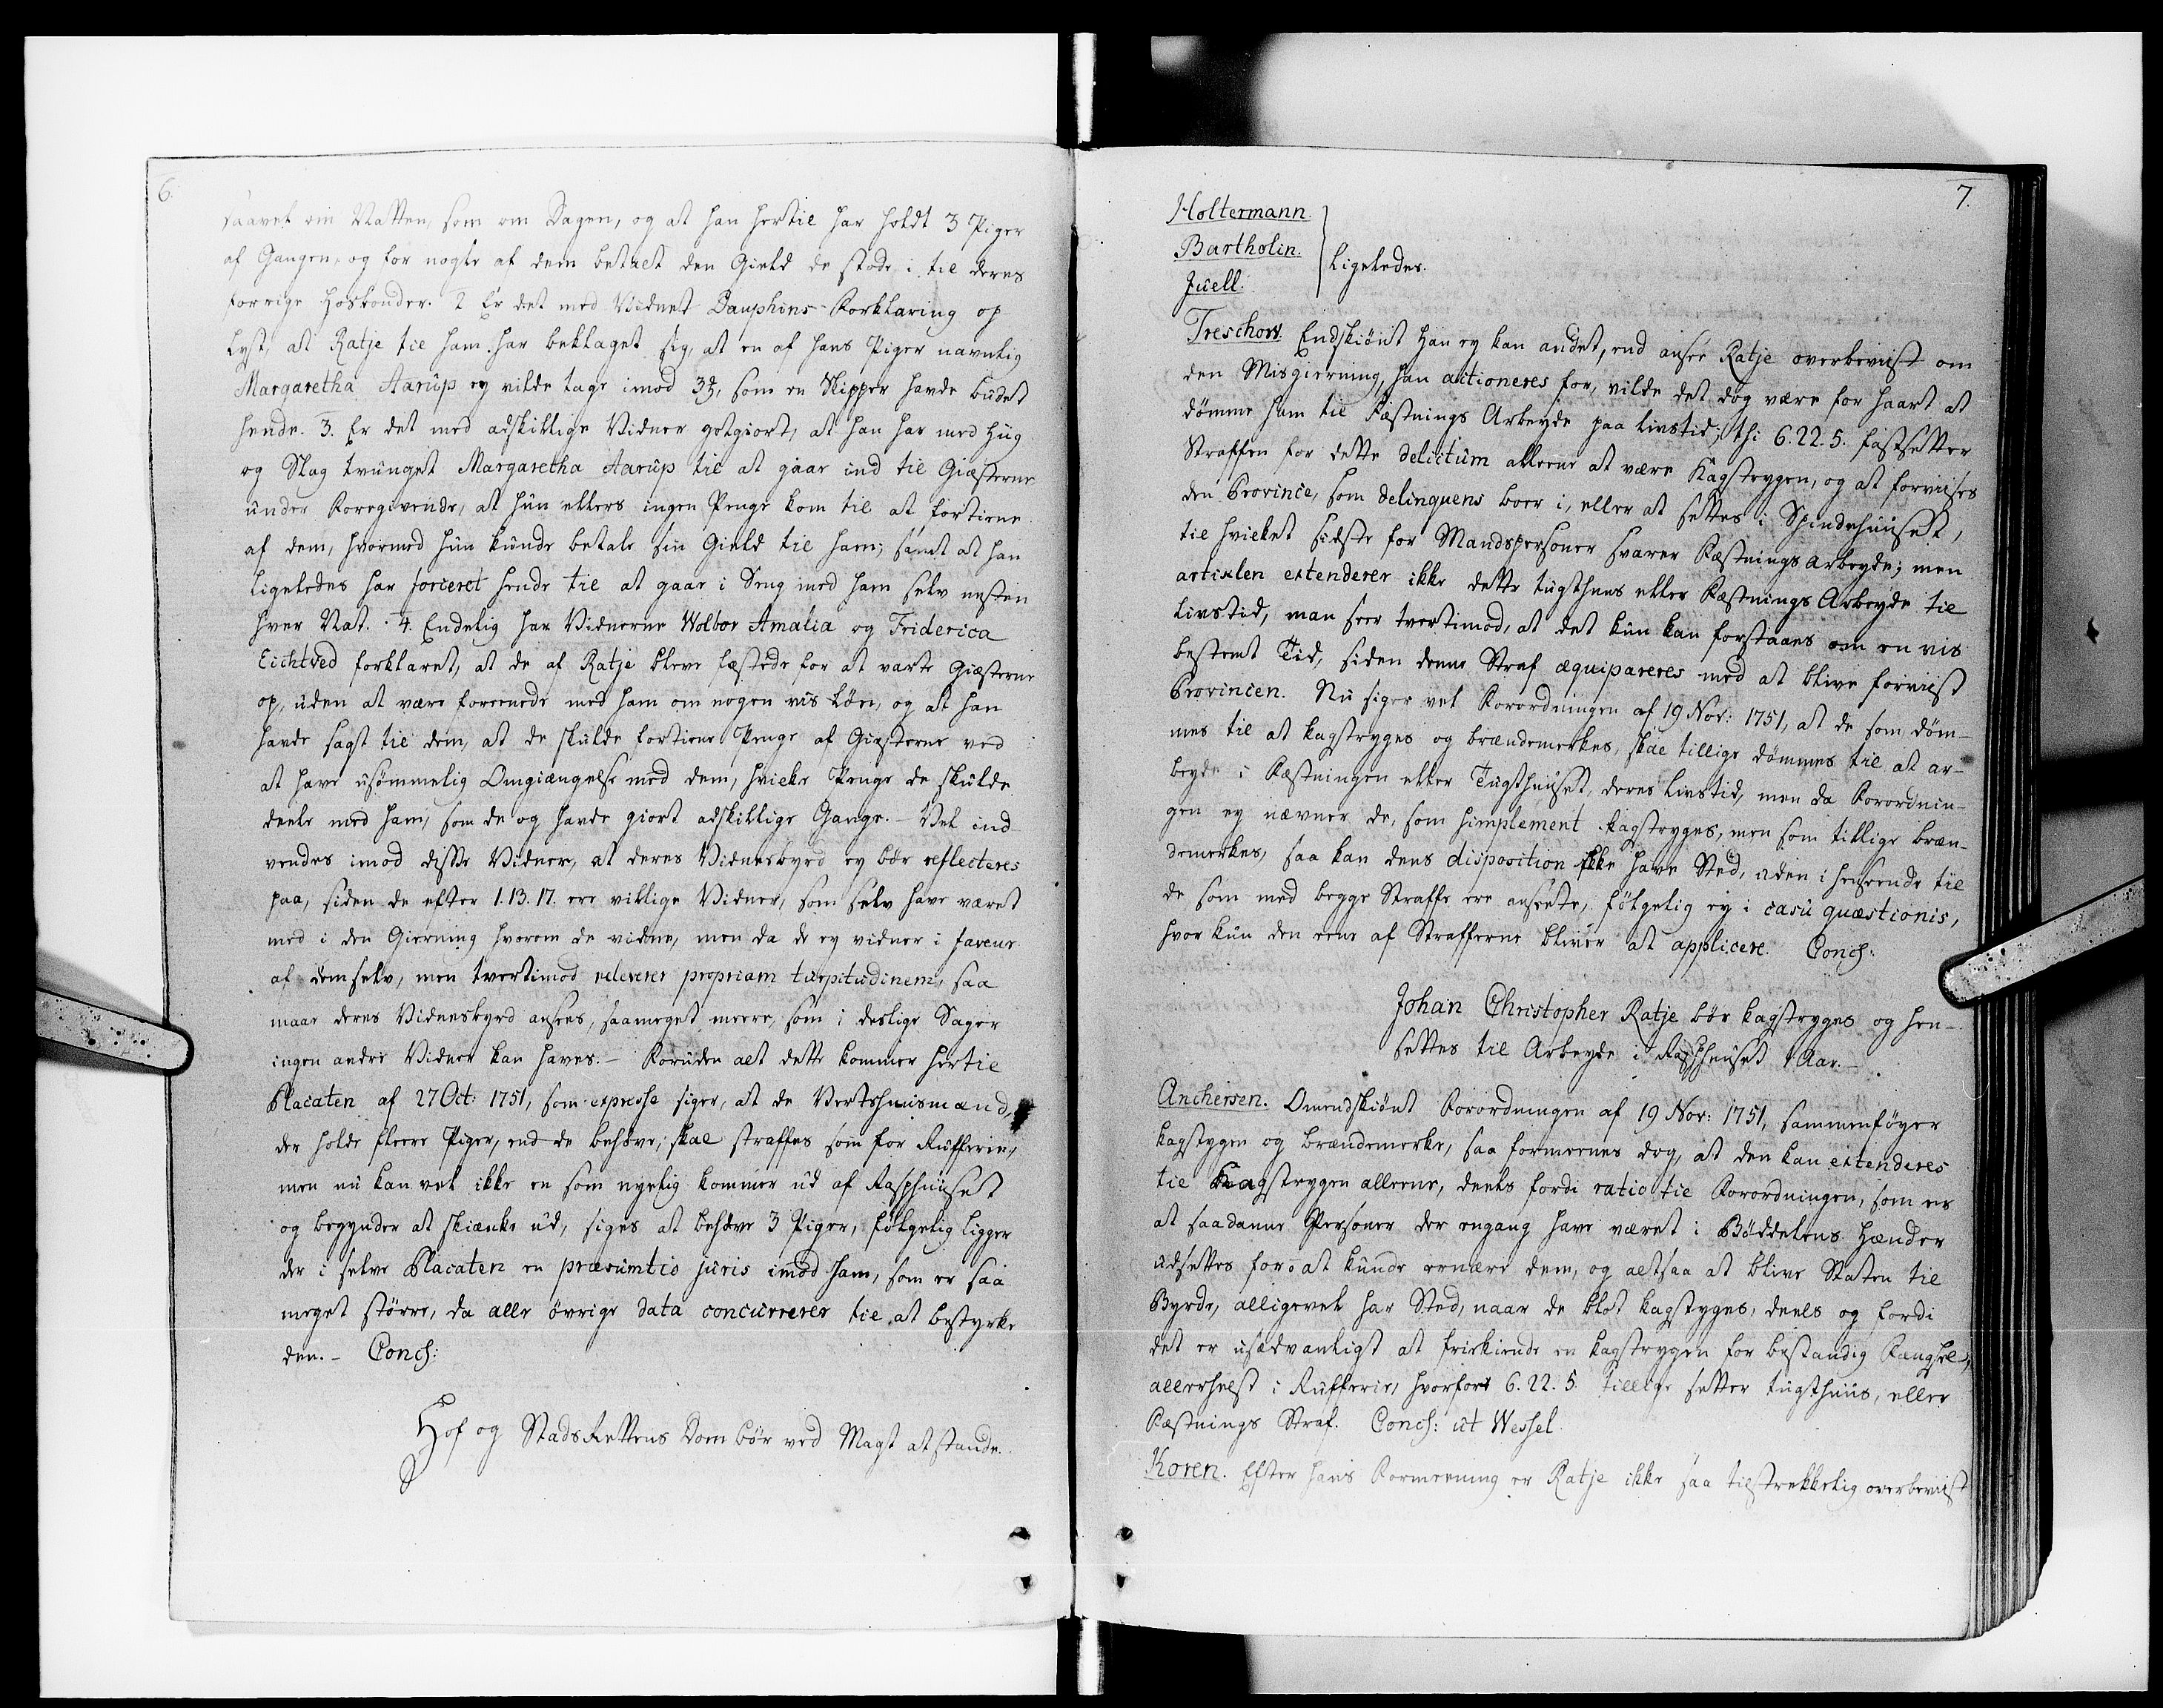 6.
saavel om Natten, som om Dagen, og at han hertil har holdt 3 Piger
af Gangen, og for nogle af dem betalt den Gield de stode i til deres
forrige Hosbonder. 2 Er det med Vidnet Dauphins Forklaring op
lyst, at Ratje til ham har beklaget sig, at en af hans Piger navnlig
Margaretha Aarup ey vilde tage imod 3 , som en Skipper havde budet
hende. 3. Er det med adskillige Vidner gotgiort, at han har med Hug
og Slag tvunget Margaretha Aarup til at gaae ind til Giæsterne
under Foregivende, at hun ellers ingen Penge kom til at fortiene
af dem, hvormed hun kunde betale sin Gield til ham; samt at han
ligeledes har forceret hende til at gaae i Seng med ham selv nesten
hver Nat. 4. Endelig har Vidnerne Wolbor Amalia og Friderica
Eichtved forklaret, at de af Ratje bleve fæstede for at varte Giæsterne
op, uden at være foreenede med ham om nogen vis Løn, og at han
havde sagt til dem, at de skulde fortiene Penge af Giæsterne ved
at have usømmelig Omgiængelse med dem, hvilke Penge de skulde
deele med ham, som de og havde giort adskillige Gange. - Vel ind
vendes imod disse Vidner, at deres Vidnesbyrd ey bør reflecteres
paa, siden de efter 1.13.17. ere villige Vidner, som selv have været
med i den Gierning hvorom de vidne, men da de ey vidner i faveur
af dem selv, men tvertimod releverer propriam turpitudinem, saa
maae deres Vidnesbyrd ansees, saameget meere, som i deslige Sager
ingen andre Vidner kan haves. - Foruden alt dette kommer hertil
Placaten af 27 Oct: 1751, som expresse siger, at de Vertshuusmænd,
der holde fleere Piger, end de behøve, skal straffes som for Rufferie,
men nu kan vel ikke en som nyelig kommer ud af Rasphuuset
og begynder at skienke ud, siges at behøve 3 Piger, følgelig ligger
der i selve Placaten en præsumtio juris imod ham, som er saa
meget større, da alle øvrige data concurrerer til at bestyrke
den. - Concl:
Hof og StadsRettens Dom bør ved Magt at stande.
7.
Holtermann.
Bartholin.
Juell.
Ligeledes.
Treschow. Endskiønt han ey kan andet, end ansee Ratje overbeviist om
den Misgierning, han actioneres for, vilde det dog være for haart at
dømme ham til Fæstnings Arbeyde paa Livstid; thi 6.22.5. fastsetter
Straffen for dette delictum alleene at være Kagstrygen, og at forvises
den Province, som delinquens boer i, eller at settes i Spindehuuset,
til hvilket sidste for Mandspersoner svarer Fæstnings Arbeyde; men
articlen extenderer ikke dette Tugthuus eller Fæstnings Arbeyde til
Livstid, man seer tvertimod, at det kun kan forstaaes om en vis
bestemt Tid, siden denne Straf æquipareres med at blive forviist
Provincen. Nu siger vel Forordningen af 19 Nov: 1751, at de som døm-
mes til at kagstryges og brændemerkes, skal tillige dømmes til at ar-
beyde i Fæstningen eller Tugthuuset, deres Livstid, men da Forordnin-
gen ey nævner de, som simplement kagstryges, men som tillige bræn-
demerkes, saa kan dens disposition ikke have Sted, uden i henseende til
de som med begge Straffe ere anseete, følgelig ey i casu quæstionis,
hvor kun den eene af Strafferne bliver at applicere. Concl:
Johan Christopher Ratje bør kagstryges og hen-
settes til Arbeyde i Rasphuuset 1 Aar. -
Anchersen. Omendskiønt Forordningen af 19 Nov: 1751, sammenføyer
kagstrygen og brændemerke, saa formeenes dog, at den kan extenderes
til Kagstrygen alleene, deels fordi ratio til Forordningen, som er
at saadanne Personer der engang have været i Bøddelens Hænder
udsettes for at kunde ernære dem, og altsaa at blive Staten til
Byrde, alligevel har Sted, naar de blot kagstryges, deels og fordi
det er usædvanligt at frikiende en kagstrygen for bestandig Fængsel,
allerhelst i Rufferie, hvorfor 6.22.5. tillige setter Tugthuus, eller
Fæstnings Straf. Concl: ut Wessel.
Koren. Efter hans Formeening er Ratje ikke saa tilstrekkelig overbeviist